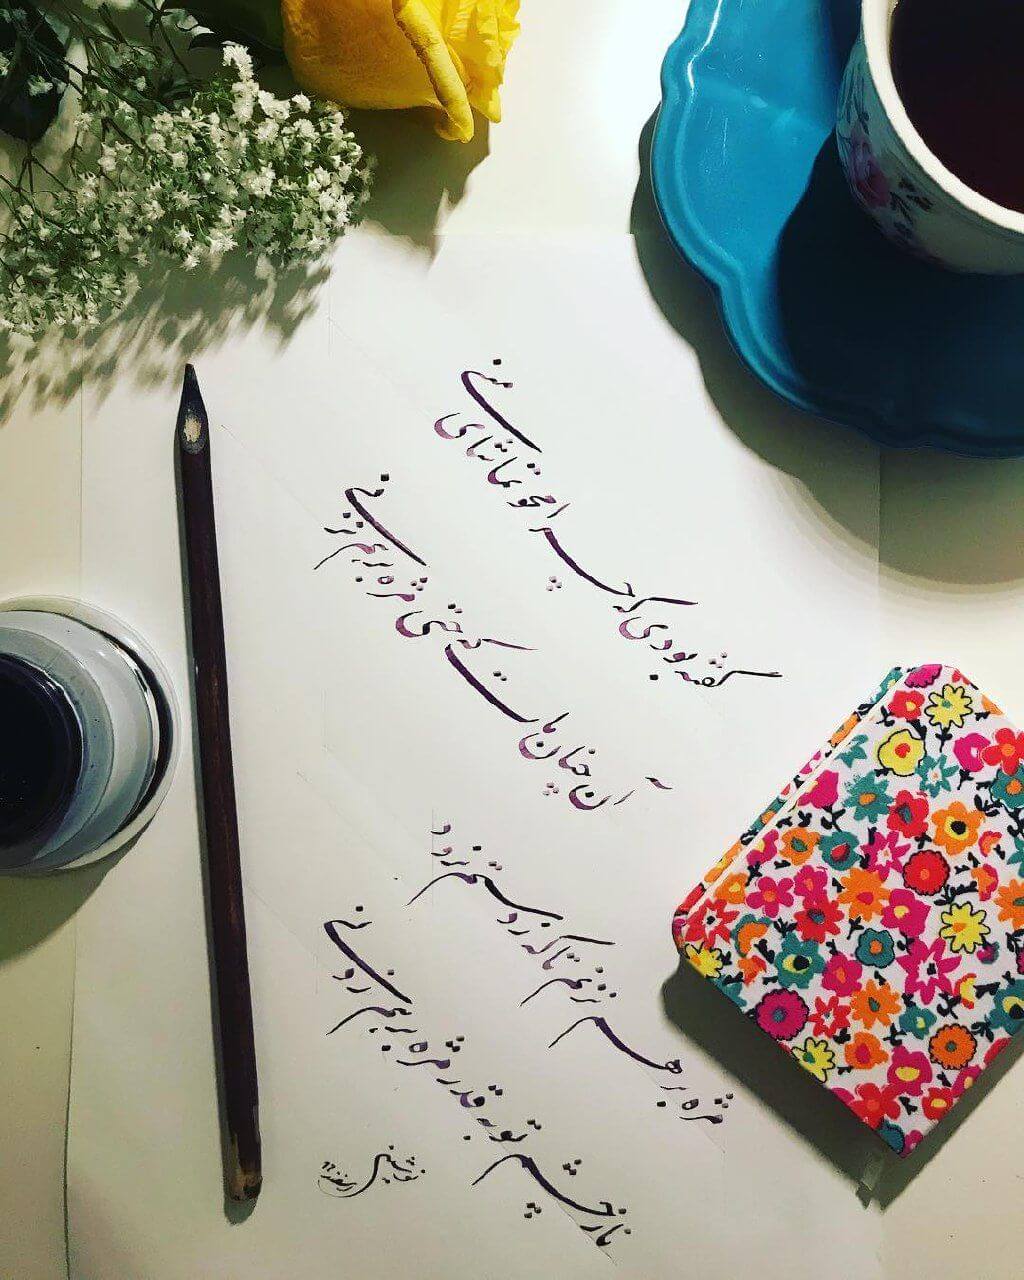 گفته بودی که چرا محو تماشای منی
آن چنان مات که حتی مژه برهم نزنی
مژه برهم نزنم تا که ز دستم نرود
ناز چشم تو به قدر مژه برهم زدنی